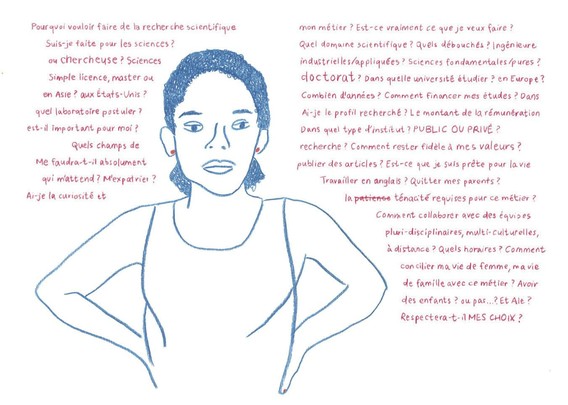 Pourquoi vouloir faire de la recherche scientifique mon métier ? Est-ce vraiment ce que je veux faire ?
Suis-je faite pour les sciences ? Quel domaine scientifique ? Quels débouchés ? Ingénieure
ou chercheuse ? Sciences industrielles/appliquées ? Sciences fondamentales/pures ?
Simple licence, master ou doctorat ? Dans quelle université étudier ? en Europe ?
en Asie ? aux États-Unis ? Combien d'années ? Comment financer mes études ? Dans
quel laboratoire postuler ? Ai-je le profil recherché ? Le montant de la rémunération
est-il important pour moi ? Dans quel type d'institut ? PUBLIC OU PRIVÉ ?
Quels champs de recherche ? Comment rester fidèle à mes valeurs ?
Me faudra-t-il absolument publier des articles ? Est-ce que je suis prête pour la vie
qui m'attend ? M'expatrier ? Travailler en anglais ? Quitter mes parents ?
Ai-je la curiosité et la patience ténacité requises pour ce métier ?
Comment collaborer avec des équipes
pluri-disciplinaires, multi-culturelles,
à distance ? Quels horaires ? Comment
concilier ma vie de femme, ma vie
de famille avec ce métier ? Avoir
des enfants ? ou pas...? Et Ale ?
Respectera-t-il MES CHOIX ?